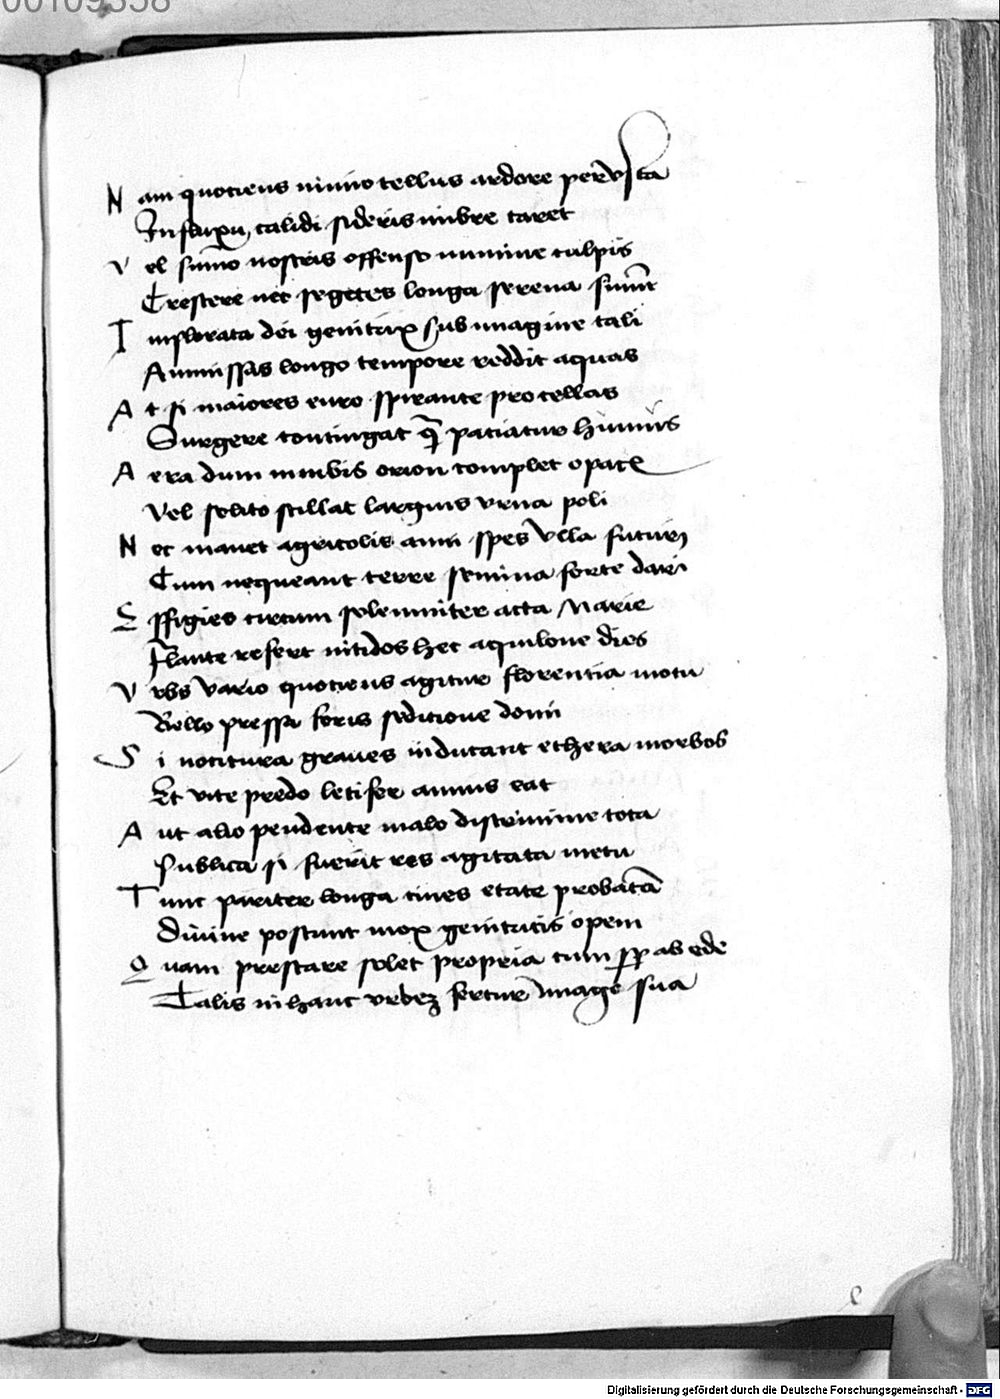 00109358
Nam quotiens nimio tellus ardore perusta
Influxu calidi sideris imbre caret
Vel sumo nostris offenso numine culpis
Crescere nec segetes longa serena sinunt
Implorata dei genitrix sub imagine tali
Ammissas longo tempore reddit aquas
At si maiores euro spirante procellas
Surgere contingat q̃ patiatur humus
Aera dum nimbis orion complet opace
Vel solito stillat largius vrna poli
Nec manet agricolis anni spes vlla futuri
Cum nequeant terre semina forte dari
Effigies circum solenniter acta Marie
Flante refert nitidos hec aquilone dies
Vrbs vario quotiens agitur florentia motu
Bello pressa foris seditione domi
Si nocitura graues inducant ethera morbos
Et vite predo letifer annus eat
Aut alio pendente malo discrimine tota
Publica si fuerit res agitata metu
Tunc pariter longa ciues etate probatã
Diuine poscunt mox genitricis opem
Quam prestare solet propria cum sp ab ede
Talis in hanc vrbez fertur imago sua
Digitalisierung gefördert durch die Deutsche Forschungsgemeinschaft - DFG